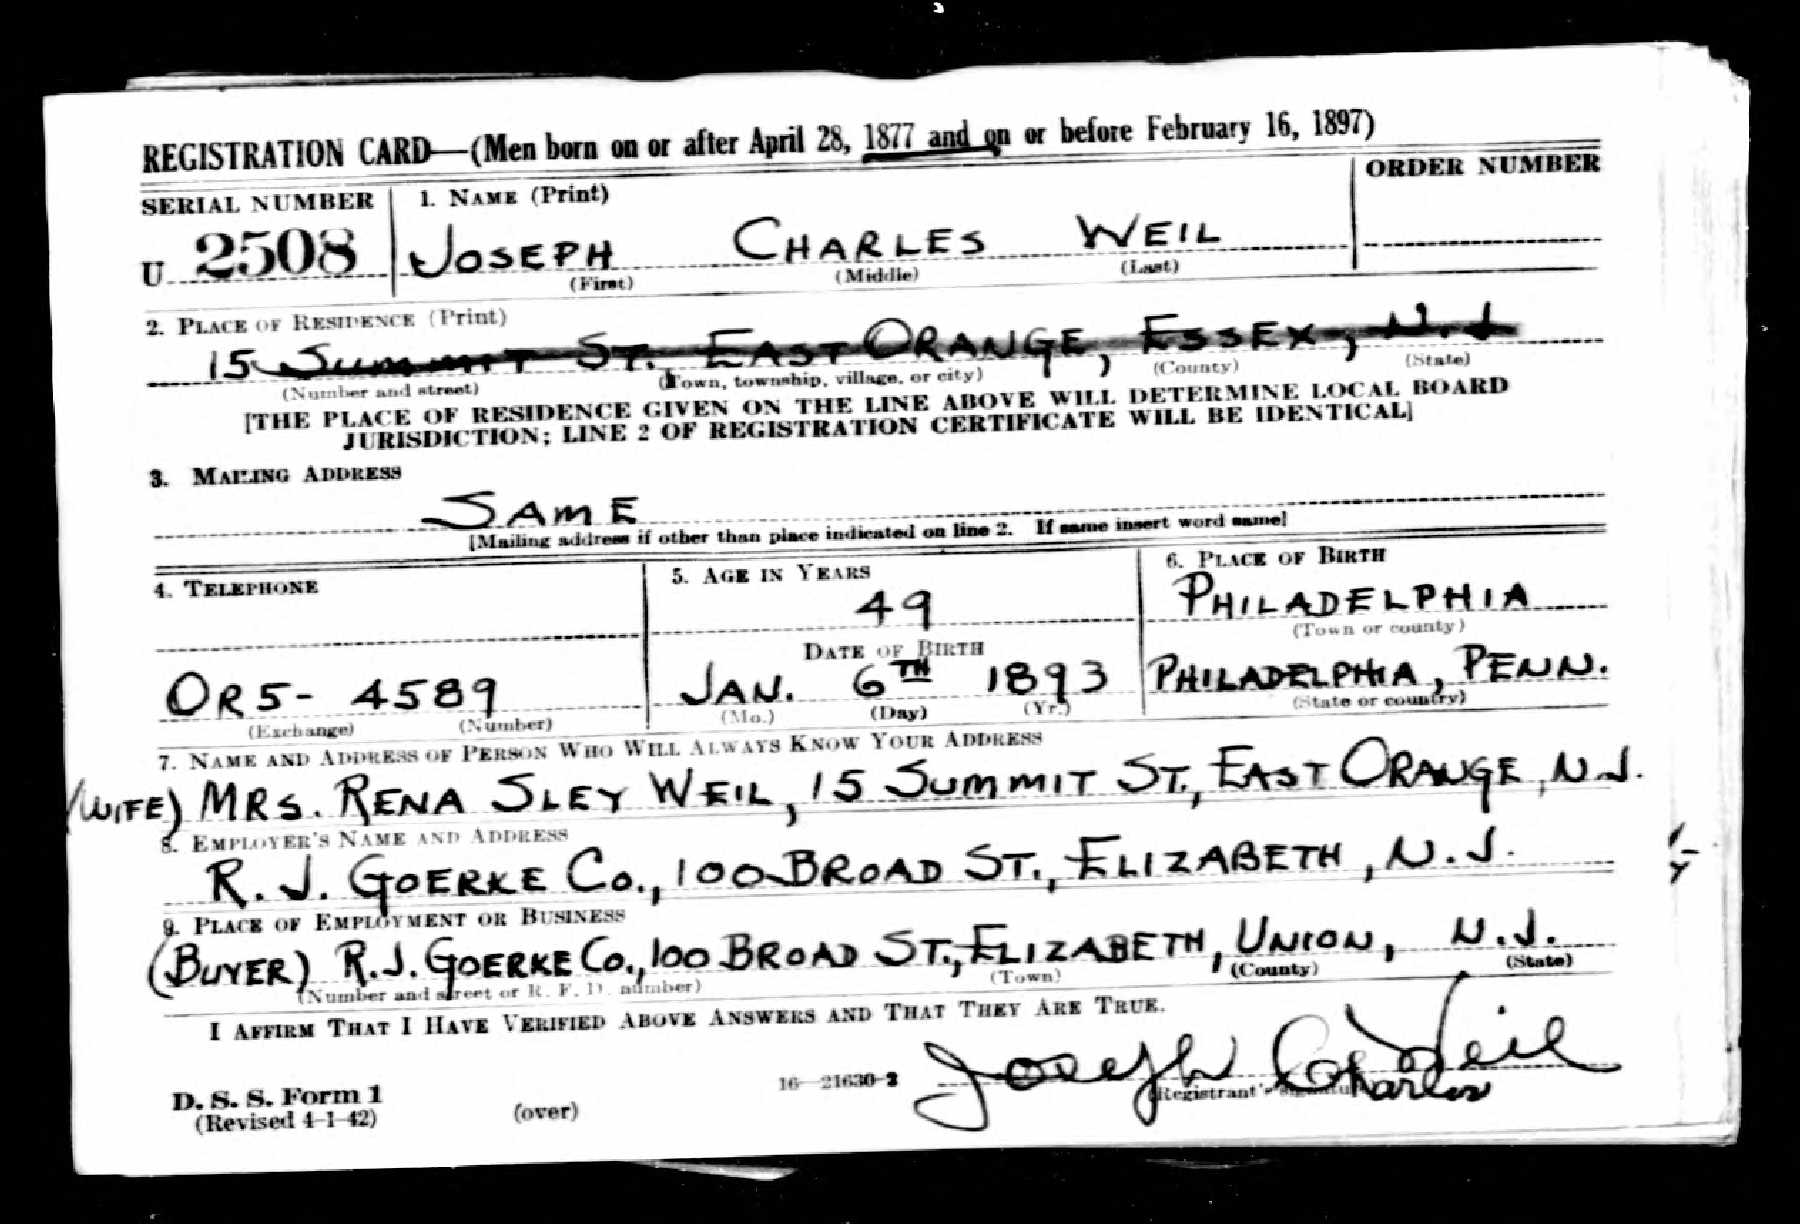 REGISTRATION CARD—(Men born on or after April 28, 1877 and on or before February 16, 1897)
SERIAL NUMBER 1. NAME (Print) ORDER NUMBER
U 2508 JOSEPH CHARLES WEIL
(First) (Middle) (Last)
2. PLACE OF RESIDENCE (Print)
15 SUMMIT ST. EAST ORANGE, ESSEX, N.J.
(Number and street) (Town, township, village, or city) (County) (State)
[THE PLACE OF RESIDENCE GIVEN ON THE LINE ABOVE WILL DETERMINE LOCAL BOARD
JURISDICTION; LINE 2 OF REGISTRATION CERTIFICATE WILL BE IDENTICAL]
3. MAILING ADDRESS
SAME
[Mailing address if other than place indicated on line 2. If same insert word same]
4. TELEPHONE 5. AGE IN YEARS 6. PLACE OF BIRTH
49 PHILADELPHIA
(Town or county)
DATE OF BIRTH
OR5- 4589 JAN. 6TH 1893 PHILADELPHIA, PENN.
(Exchange) (Number) (Mo.) (Day) (Yr.) (State or country)
7. NAME AND ADDRESS OF PERSON WHO WILL ALWAYS KNOW YOUR ADDRESS
(WIFE) MRS. RENA SLEY WEIL, 15 SUMMIT ST., EAST ORANGE, N.J.
8. EMPLOYER'S NAME AND ADDRESS
R. J. GOERKE CO., 100 BROAD ST., ELIZABETH, N.J.
9. PLACE OF EMPLOYMENT OR BUSINESS
(BUYER) R.J. GOERKE CO., 100 BROAD ST., ELIZABETH, UNION, N.J.
(Number and street or R. F. D. number) (Town) (County) (State)
I AFFIRM THAT I HAVE VERIFIED ABOVE ANSWERS AND THAT THEY ARE TRUE.
Joseph Charles Weil
D. S. S. Form 1 16—21630-2 (Registrant's signature)
(Revised 4-1-42) (over)